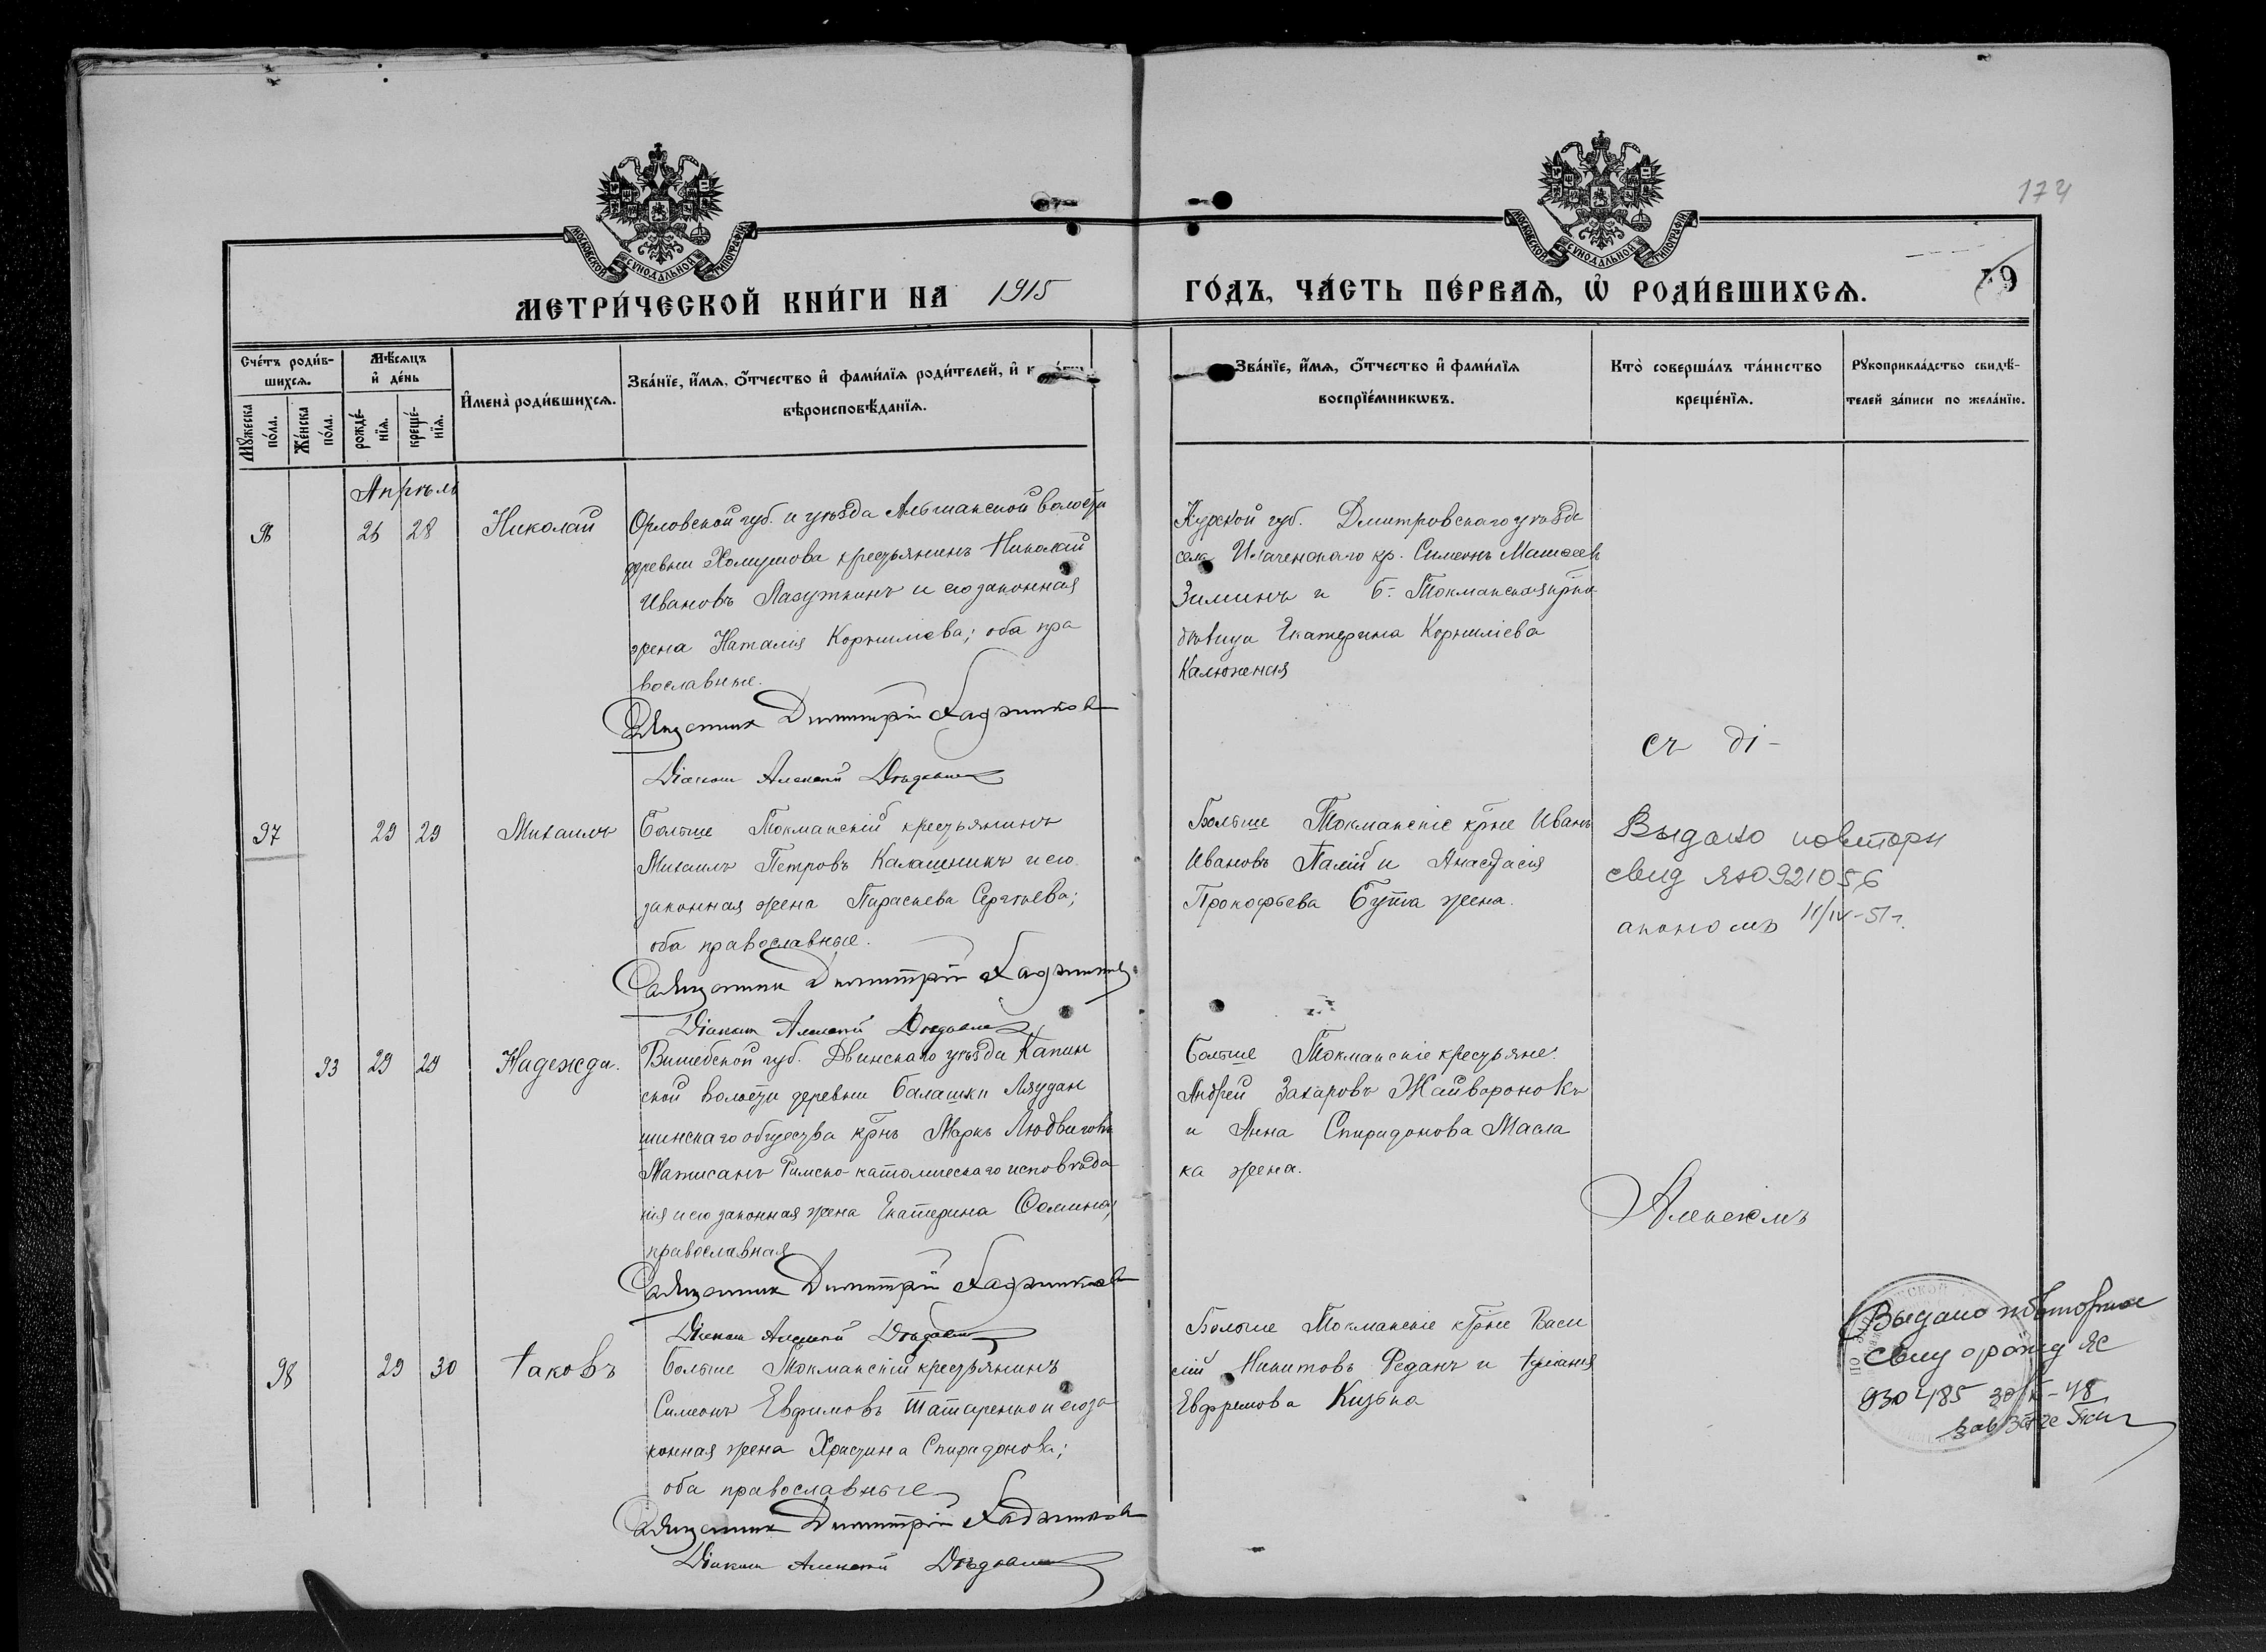 174
МОСКОВСКОЙ СѴНОДАЛЬНОЙ ТИПОГРАФІИ
МОСКОВСКОЙ СѴНОДАЛЬНОЙ ТИПОГРАФІИ
МЕТРИ́ЧЕСКОЙ КНИ́ГИ НА 1915 ГО́ДЪ, ЧА́СТЬ ПЕ́РВАѦ, Ѡ РОДИ́ВШИХСѦ.
Сче́тъ роди́в-
шихсѧ.
Мꙋжеска по́ла.
Же́нска по́ла.
Мѣ́сѧцъ и҆ де́нь
рожде́-нїѧ.
креще́-нїѧ.
И҆мена̀ роди́вшихсѧ.
Зва́нїе, и҆́мѧ, ѻ҆́тчество и҆ фами́лїѧ роди́телей, и҆
вѣроисповѣ́данїѧ.
Зва́нїе, и҆́мѧ, ѻ҆́тчество и҆ фами́лїѧ
воспрїе́мникѡвъ.
Кто̀ соверша́лъ та́инство
креще́нїѧ.
Рꙋкоприкла́дство свидѣ́-
телей за́писи по жела́нїю.
Апрѣль
26 28 Николай
Орловской губ. и уѣзда Альшанской волости
деревни крестьянинъ Николай
Ивановъ Лазуткинъ и его законная
жена Наталія Корниліева; оба пра
вославные.
Священникъ Димитрій
Діаконъ Алексій
Курской губ. Дмитровскаго уѣзда
села кр. Симеонъ
Зиминъ и Б. Токманская
дѣвица Екатерина Корниліева
съ ді-
97 29 29 Михаилъ
Больше Токманскій крестьянинъ
Михаилъ Петровъ Калашникъ и его
законная жена Параскева Сергѣева;
оба православные.
Священникъ Димитрій
Діаконъ Алексій
Больше Токманскіе крне Иванъ
Ивановъ Палій и Анастасія
Прокофьева Бута жена.
Выдано повторн
свид ЯЮ 921056
11/IV-51 г.
акономъ
93 29 29 Надежда.
Витебской губ. Двинскаго уѣзда Капин
ской волости деревни Балашки Ляудан
шинскаго общества крнъ Маркъ Людвиговъ
Матисанъ Римско-католическаго исповѣда
нія и его законная жена Екатерина Ѳомина,
православная
Священникъ Димитрій
Діаконъ Алексій
Больше Токманскіе крестьяне
Андрей Захаровъ Жайворонокъ
и Анна Спиридонова Масла
ка жена.
Алексіемъ
98 29 30 Іаковъ
Больше Токманскій крестьянинъ
Симеонъ Евфимовъ Татаренко и его за
конная жена Христина Спиридонова;
оба православные
Священникъ Димитрій
Діаконъ Алексій
Больше Токманскіе крне Васи
лій Никитовъ Реданъ и Іуліанія
Евфремова Кизька
Выдано повторное
свид о рожд ЯС
930485